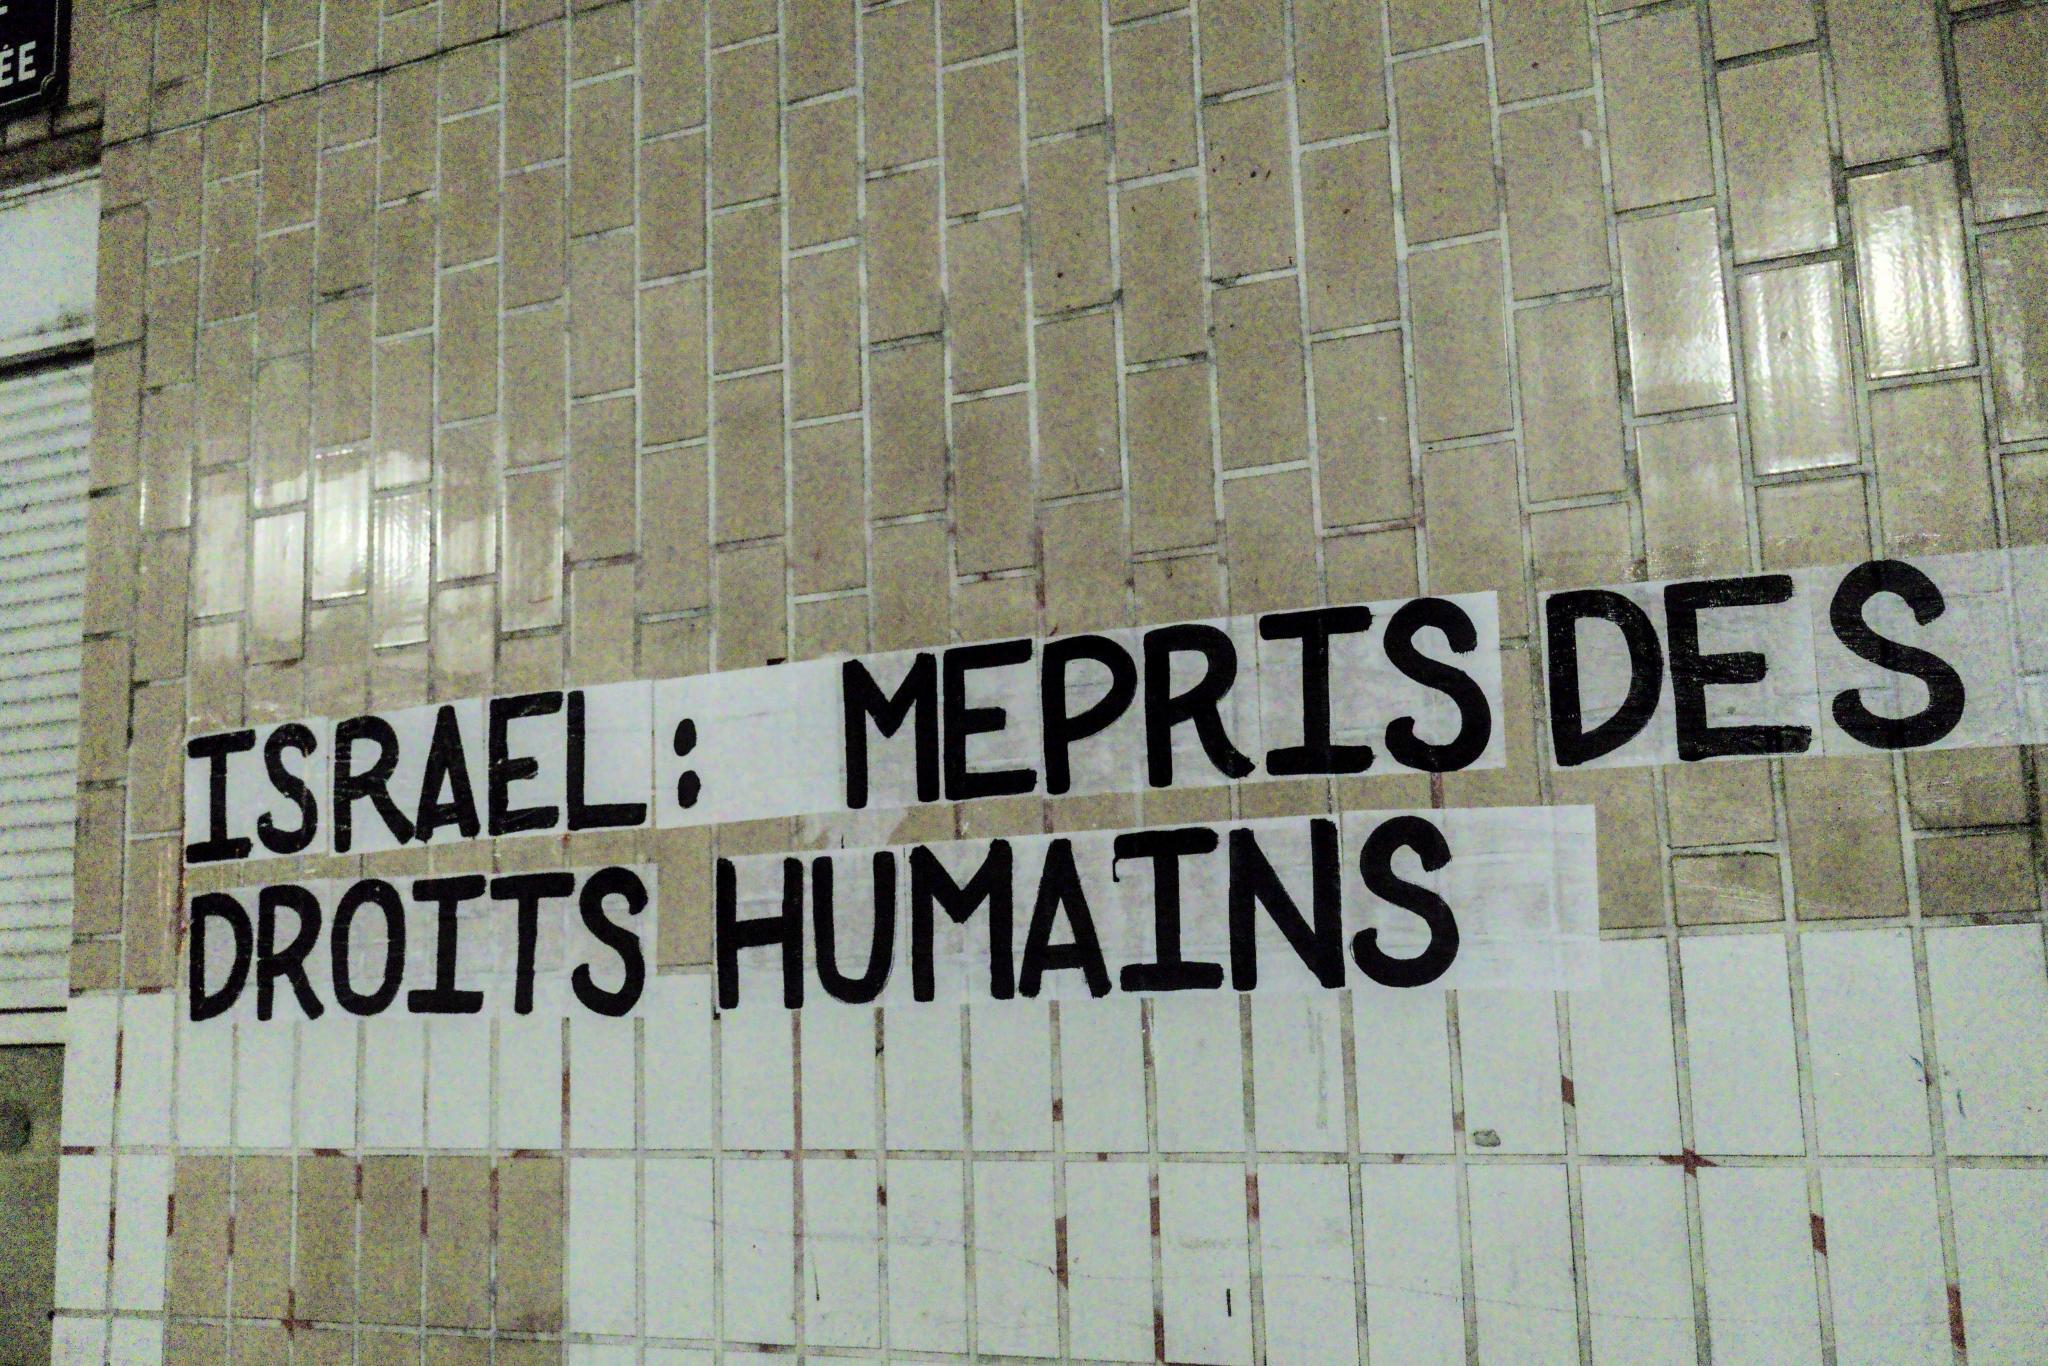 ÉE
ISRAEL : MEPRIS DES
DROITS HUMAINS